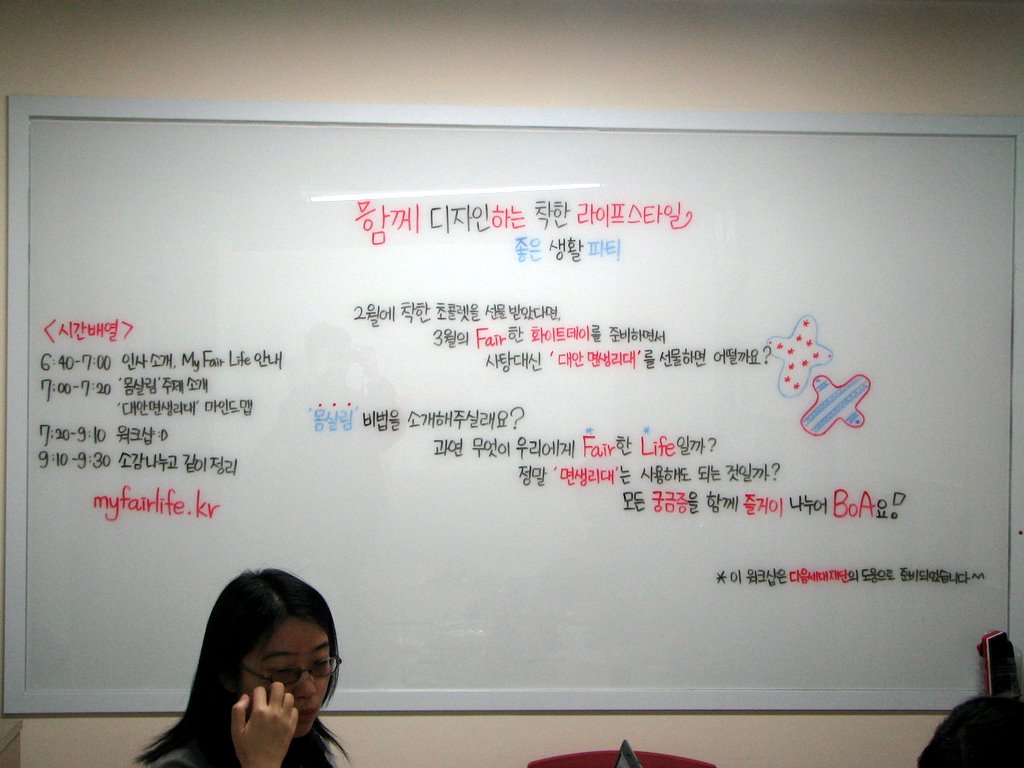 함께 디자인하는 착한 라이프스타일
좋은 생활 파티
2월에 착한 초콜렛을 선물 받았다면,
3월의 Fair한 화이트데이를 준비하면서
사탕대신 '대안 면생리대'를 선물하면 어떨까요?
'몸살림' 비법을 소개해주실래요?
과연 무엇이 우리에게 Fair한 Life일까?
정말 '면생리대'는 사용해도 되는 것일까?
모든 궁금증을 함께 즐거이 나누어 BoA요!
* 이 워크샵은 다음세대재단의 도움으로 준비되었습니다~
<시간배열>
6:40-7:00 인사 소개, My Fair Life 안내
7:00-7:20 '몸살림' 주제 소개
'대안면생리대' 마인드맵
7:20-9:10 워크샵:D
9:10-9:30 소감나누고 같이 정리
myfairlife.kr